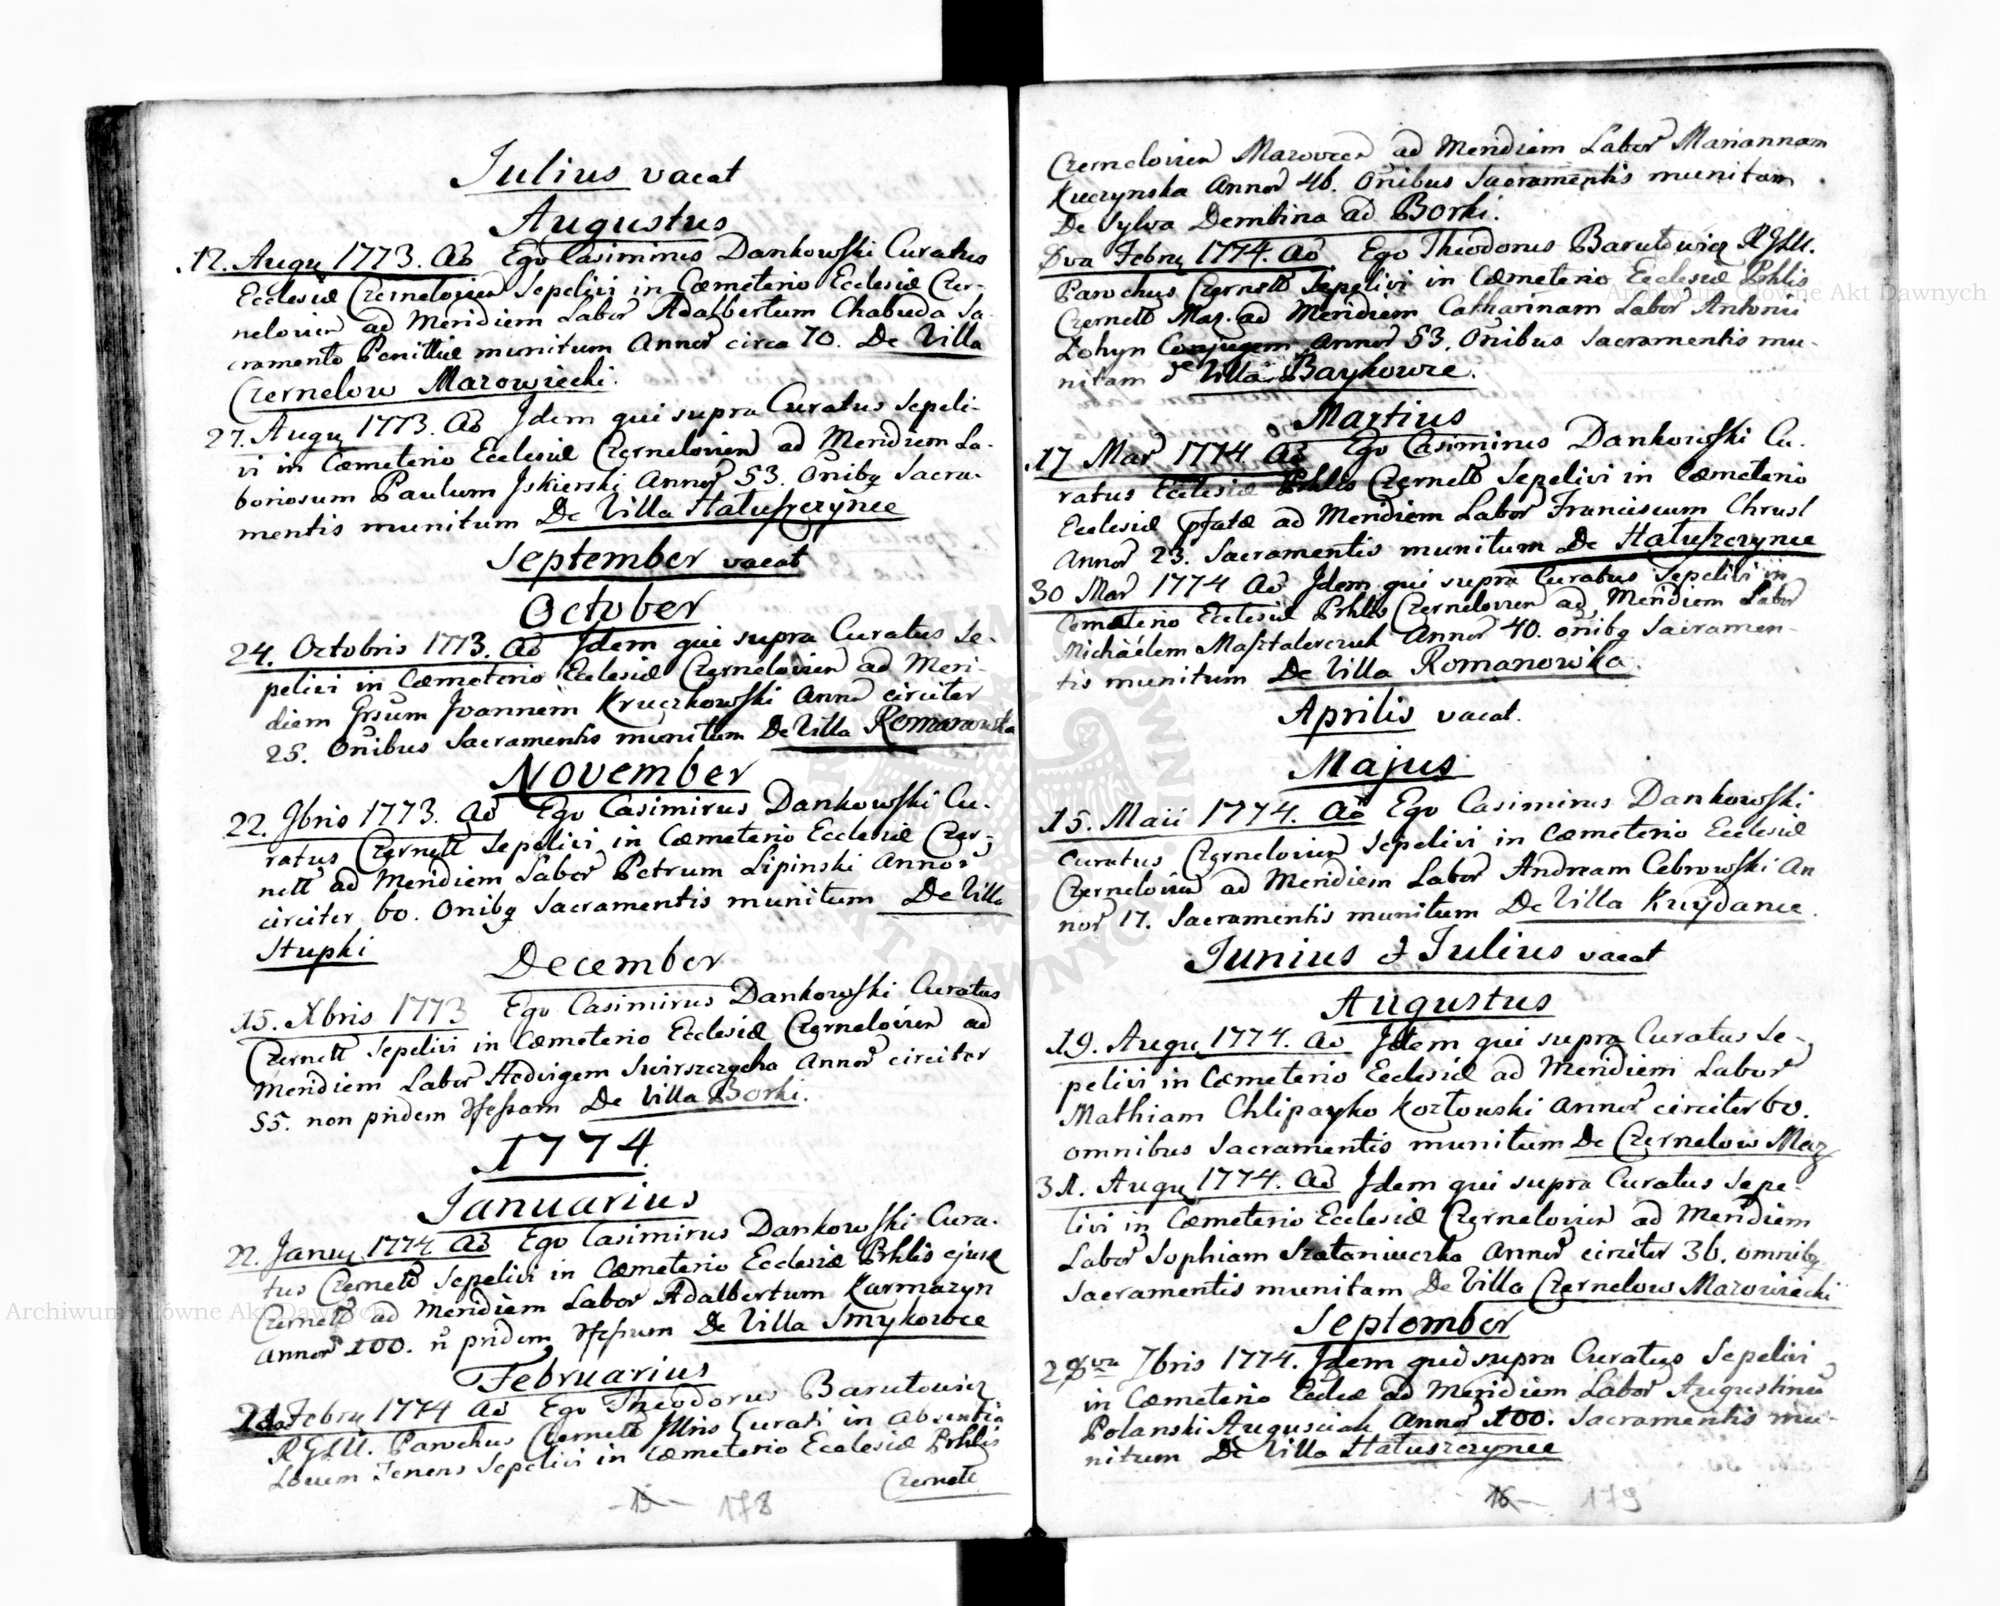 Julius vacat
Augustus
12. Augu 1773. Aō Ego Casimirus Dankowski Curatus
Ecclesiæ Czernelovien Sepelivi in Cœmeterio Ecclesiæ Czer-
nelovien ad Meridiem Labor Adalbertum Chabuda Sa-
cramento Penittiæ munitum Annor circa 70. De Villa
Czernelow Mazowiecki.
27. Augu 1773. Aō Idem qui supra Curatus Sepeli-
vi in Cœmeterio Ecclesiæ Czernelovien ad Meridiem La-
boriosum Paulum Iskierski Annor 53. Onibq Sacra-
mentis munitum De Villa Hatuszczynce
September vacat
October
24. Octobris 1773. Aō Idem qui supra Curatus Se-
pelivi in Cœmeterio Ecclesiæ Czernelovien ad Meri-
diem Joannem Kruczkowski Anno circiter
25. Onibus Sacramentis munitum De Villa Romanowka
November
22. 9bris 1773. Aō Ego Casimirus Dankowski Cu-
ratus Czernell Sepelivi in Cœmeterio Ecclesiæ Czer-
nell ad Meridiem Labor Petrum Lipinski Annor
circiter 60. Onibq Sacramentis munitum De Villa
Stupki
December
15. Xbris 1773 Ego Casimirus Dankowski Curatus
Czernell Sepelivi in Cœmeterio Ecclesiæ Czernelovien ad
Meridiem Labor Hedvigem Swirszczycha Annor circiter
55. non pridem De Villa Borki.
1774
Januarius
22. Janu 1774 Aō Ego Casimirus Dankowski Cura-
tus Czernell Sepelivi in Cœmeterio Ecclesiæ Prhlis ejusd
Czernell ad Meridiem Labor Adalbertum Karmazyn
Annor 100. n pridem De Villa Smykowce
Februarius
Febru 1774 Aō Ego Theodorus Barutowicz
RGLU. Parochus Czernell Illris Curati in absentia
Locum Tenens Sepelivi in Cœmeterio Ecclesiæ Prhlis
Czernell
15 178
Czernelovien Mazovien ad Meridiem Labor Mariannam
Kuczynska Annor 46. Onibus Sacramentis munitam
De Sylva Dembina ad Borki.
8va Febru 1774. Aō Ego Theodorus Barutowicz RGLU.
Parochus Czernell Sepelivi in Cœmeterio Ecclesiæ Prhlis
Czernell Maz. ad Meridiem Catharinam Labor Antonii
Lohyn Conjugem Annor 53. Onibus Sacramentis mu-
nitam de Villa Baykowce.
Martius
17 Mar 1774 Aō Ego Casimirus Dankowski Cu-
ratus Ecclesiæ Prhlis Czernell Sepelivi in Cœmeterio
Ecclesiæ pfatæ ad Meridiem Labor Franciscum Chrusl
Annor 23. Sacramentis munitum De Hatuszczynce
30 Mar 1774 Aō Idem qui supra Curatus Sepelivi in
Cemeterio Ecclesiæ Prhlis Czernelovien ad Meridiem Labor
Michäelem Masztalerczuk Annor 40. onibq Sacramen-
tis munitum De Villa Romanowka.
Aprilis vacat.
Majus
15. Maii 1774. Aō Ego Casimirus Dankowski
Curatus Czernelovien Sepelivi in Cœmeterio Ecclesiæ
Czernelovien ad Meridiem Labor Andream Cebrowski An
nor 17. Sacramentis munitum De Villa Kuydance.
Junius & Julius vacat
Augustus
19. Augu 1774. Aō Idem qui supra Curatus Se-
pelivi in Cœmeterio Ecclesiæ ad Meridiem Labor
Mathiam Chlipayko Kozłowski Annor circiter 60.
omnibus Sacramentis munitum De Czernelow Maz
31. Augu 1774. Aō Idem qui supra Curatus Sepe-
livi in Cœmeterio Ecclesiæ Czernelovien ad Meridiem
Labor Sophiam Szataniuczka Annor circiter 36. omnibq
Sacramentis munitam De Villa Czernelow Mazowiecki
September
28va 7bris 1774. Idem qui supra Curatus Sepelivi
in Cœmeterio Eccliæ ad Meridiem Labor Augustinū
Polanski Augusciak Annor 100. Sacramentis mu-
nitum De Villa Hatuszczynce
16 179
Archiwum Główne Akt Dawnych
Archiwum Główne Akt Dawnych